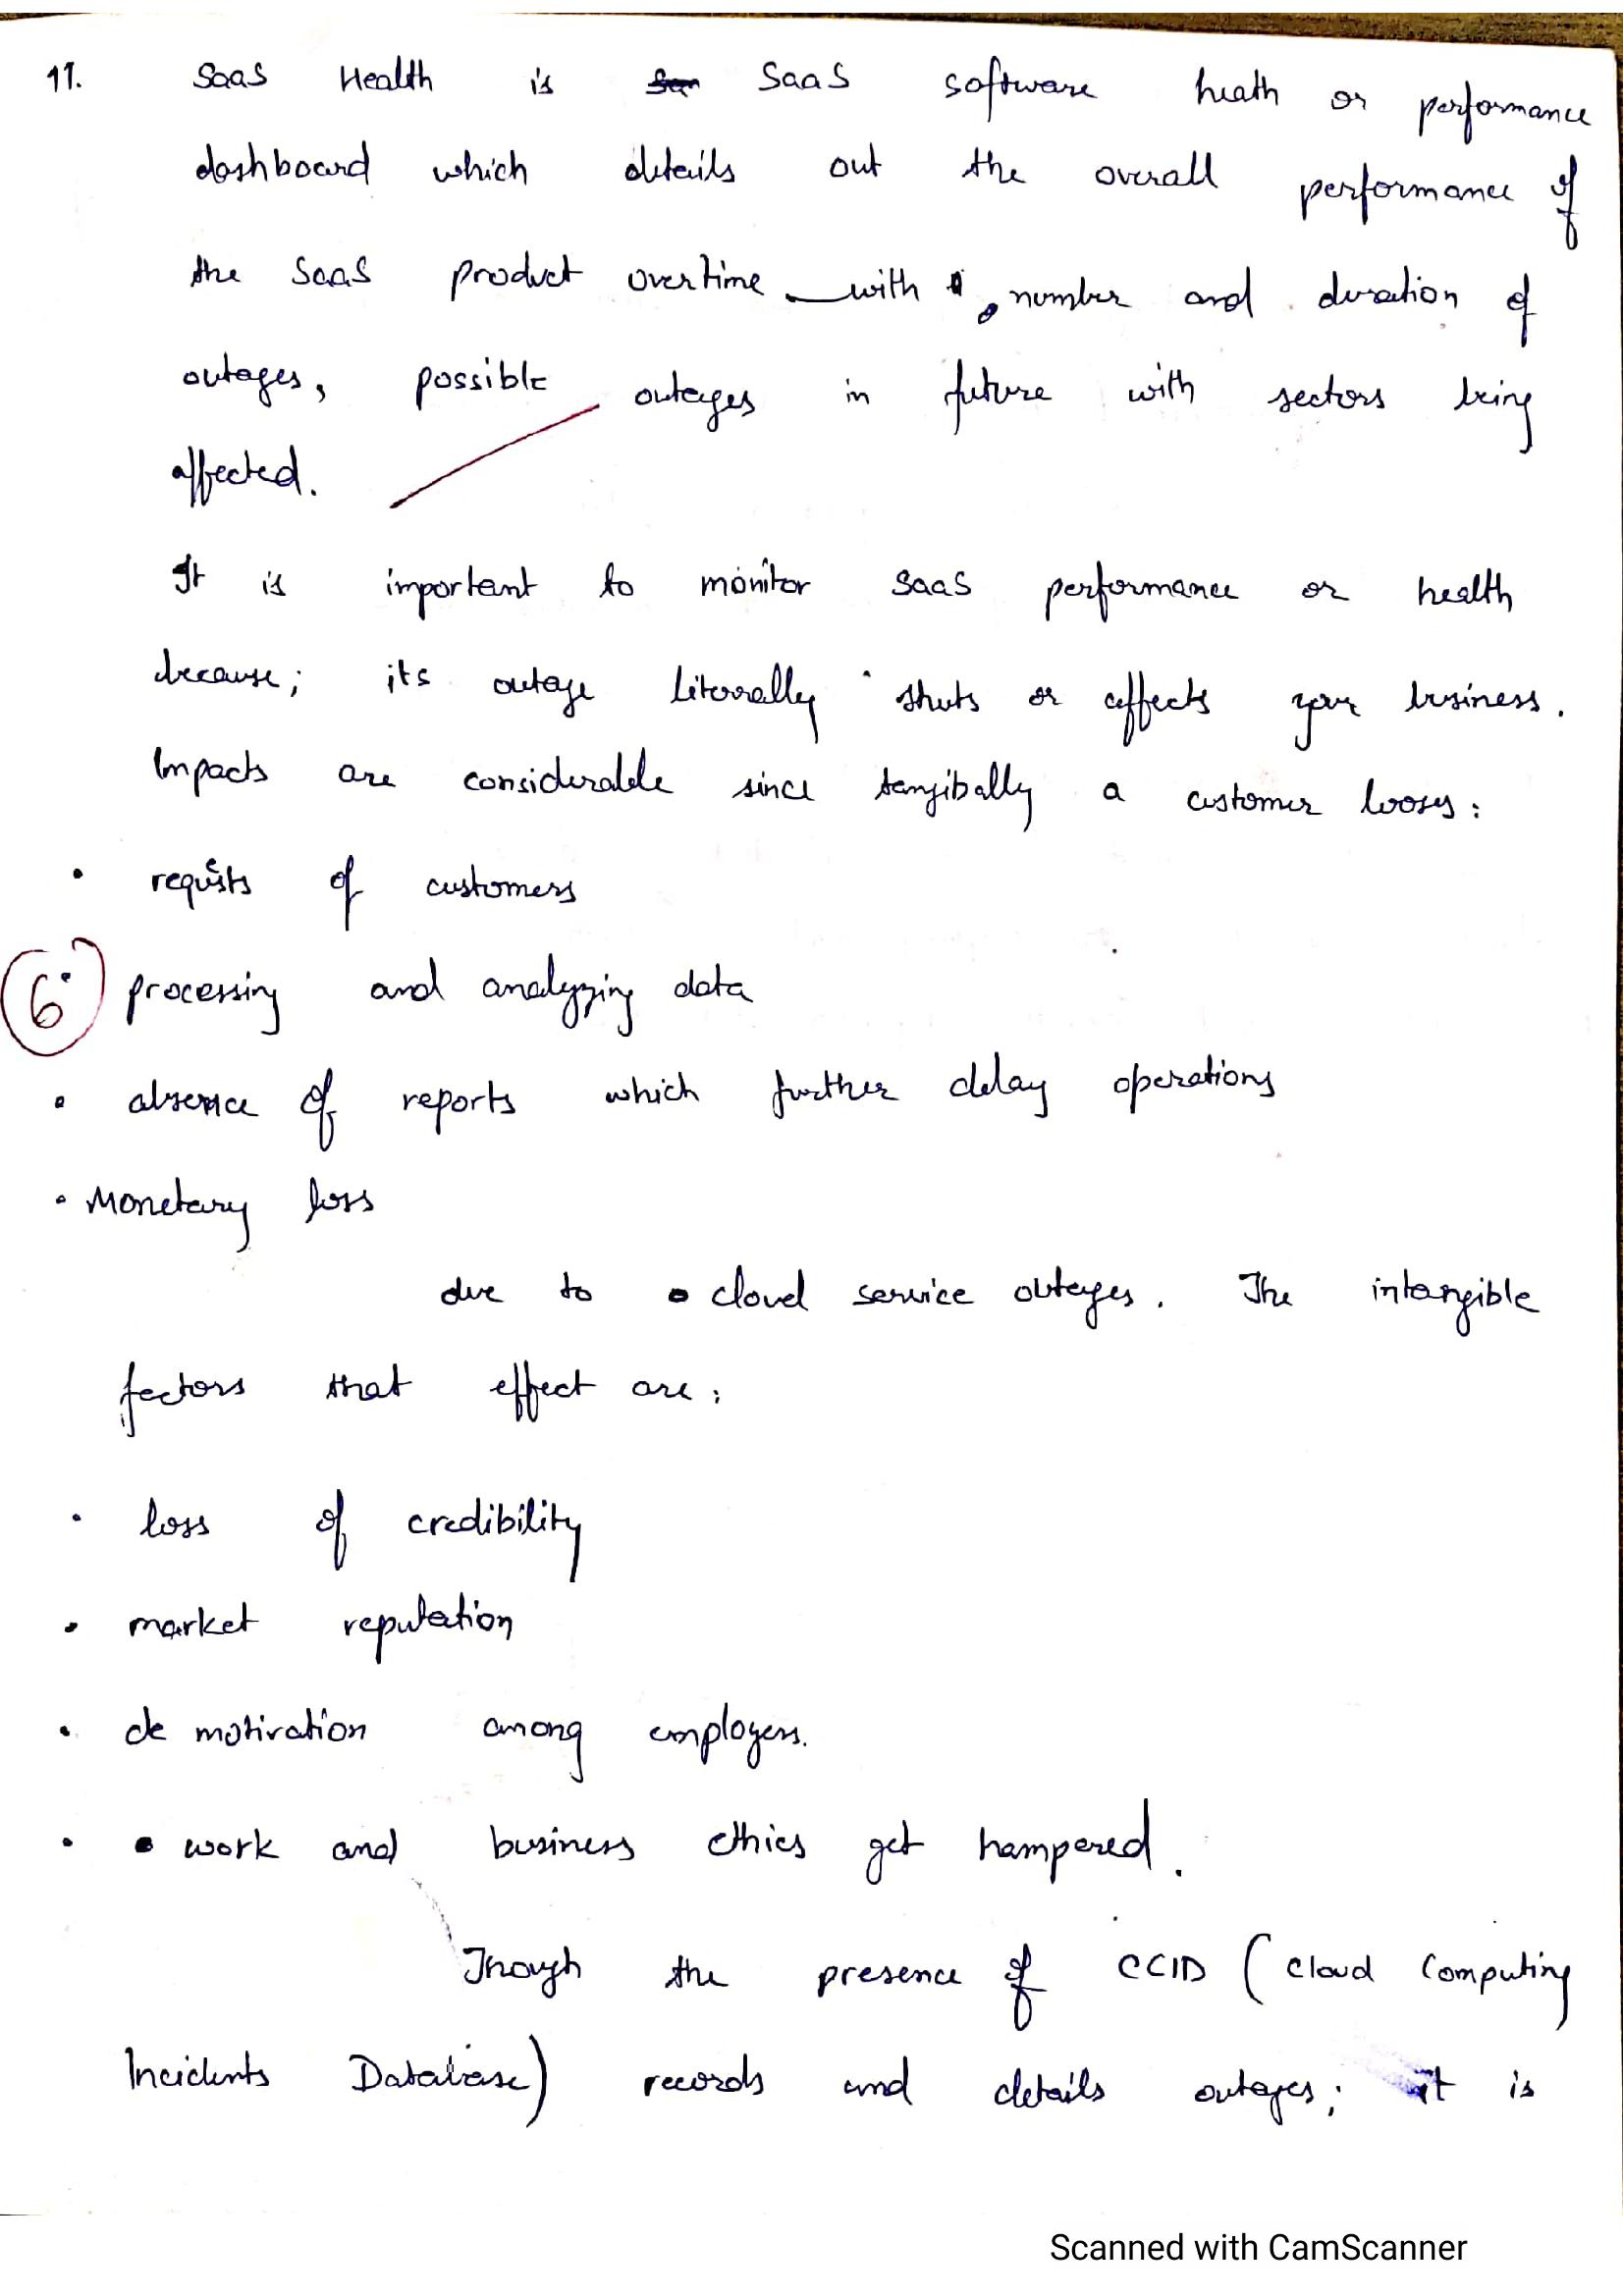 11. SaaS Health is SaaS software heath or performance
dashboard which details out the overall performance of
the SaaS product overtime with number and duration of
outages, possible outages in future with sectors being
affected.
It is important to monitor SaaS performance or health
because; its outage literally shuts or affects your business.
Impacts are considerable since tangibally a customer looses:
• requests of customers
6
• processing and analyzing data
• absence of reports which further delay operations
• Monetary loss
due to cloud service outages. The intangible
factors that effect are:
• loss of credibility
• market reputation
• de motivation among employees.
• work and business ethics get hampered.
Though the presence of CCID (Cloud Computing
Incidents Database) records and details outages; it is
Scanned with CamScanner